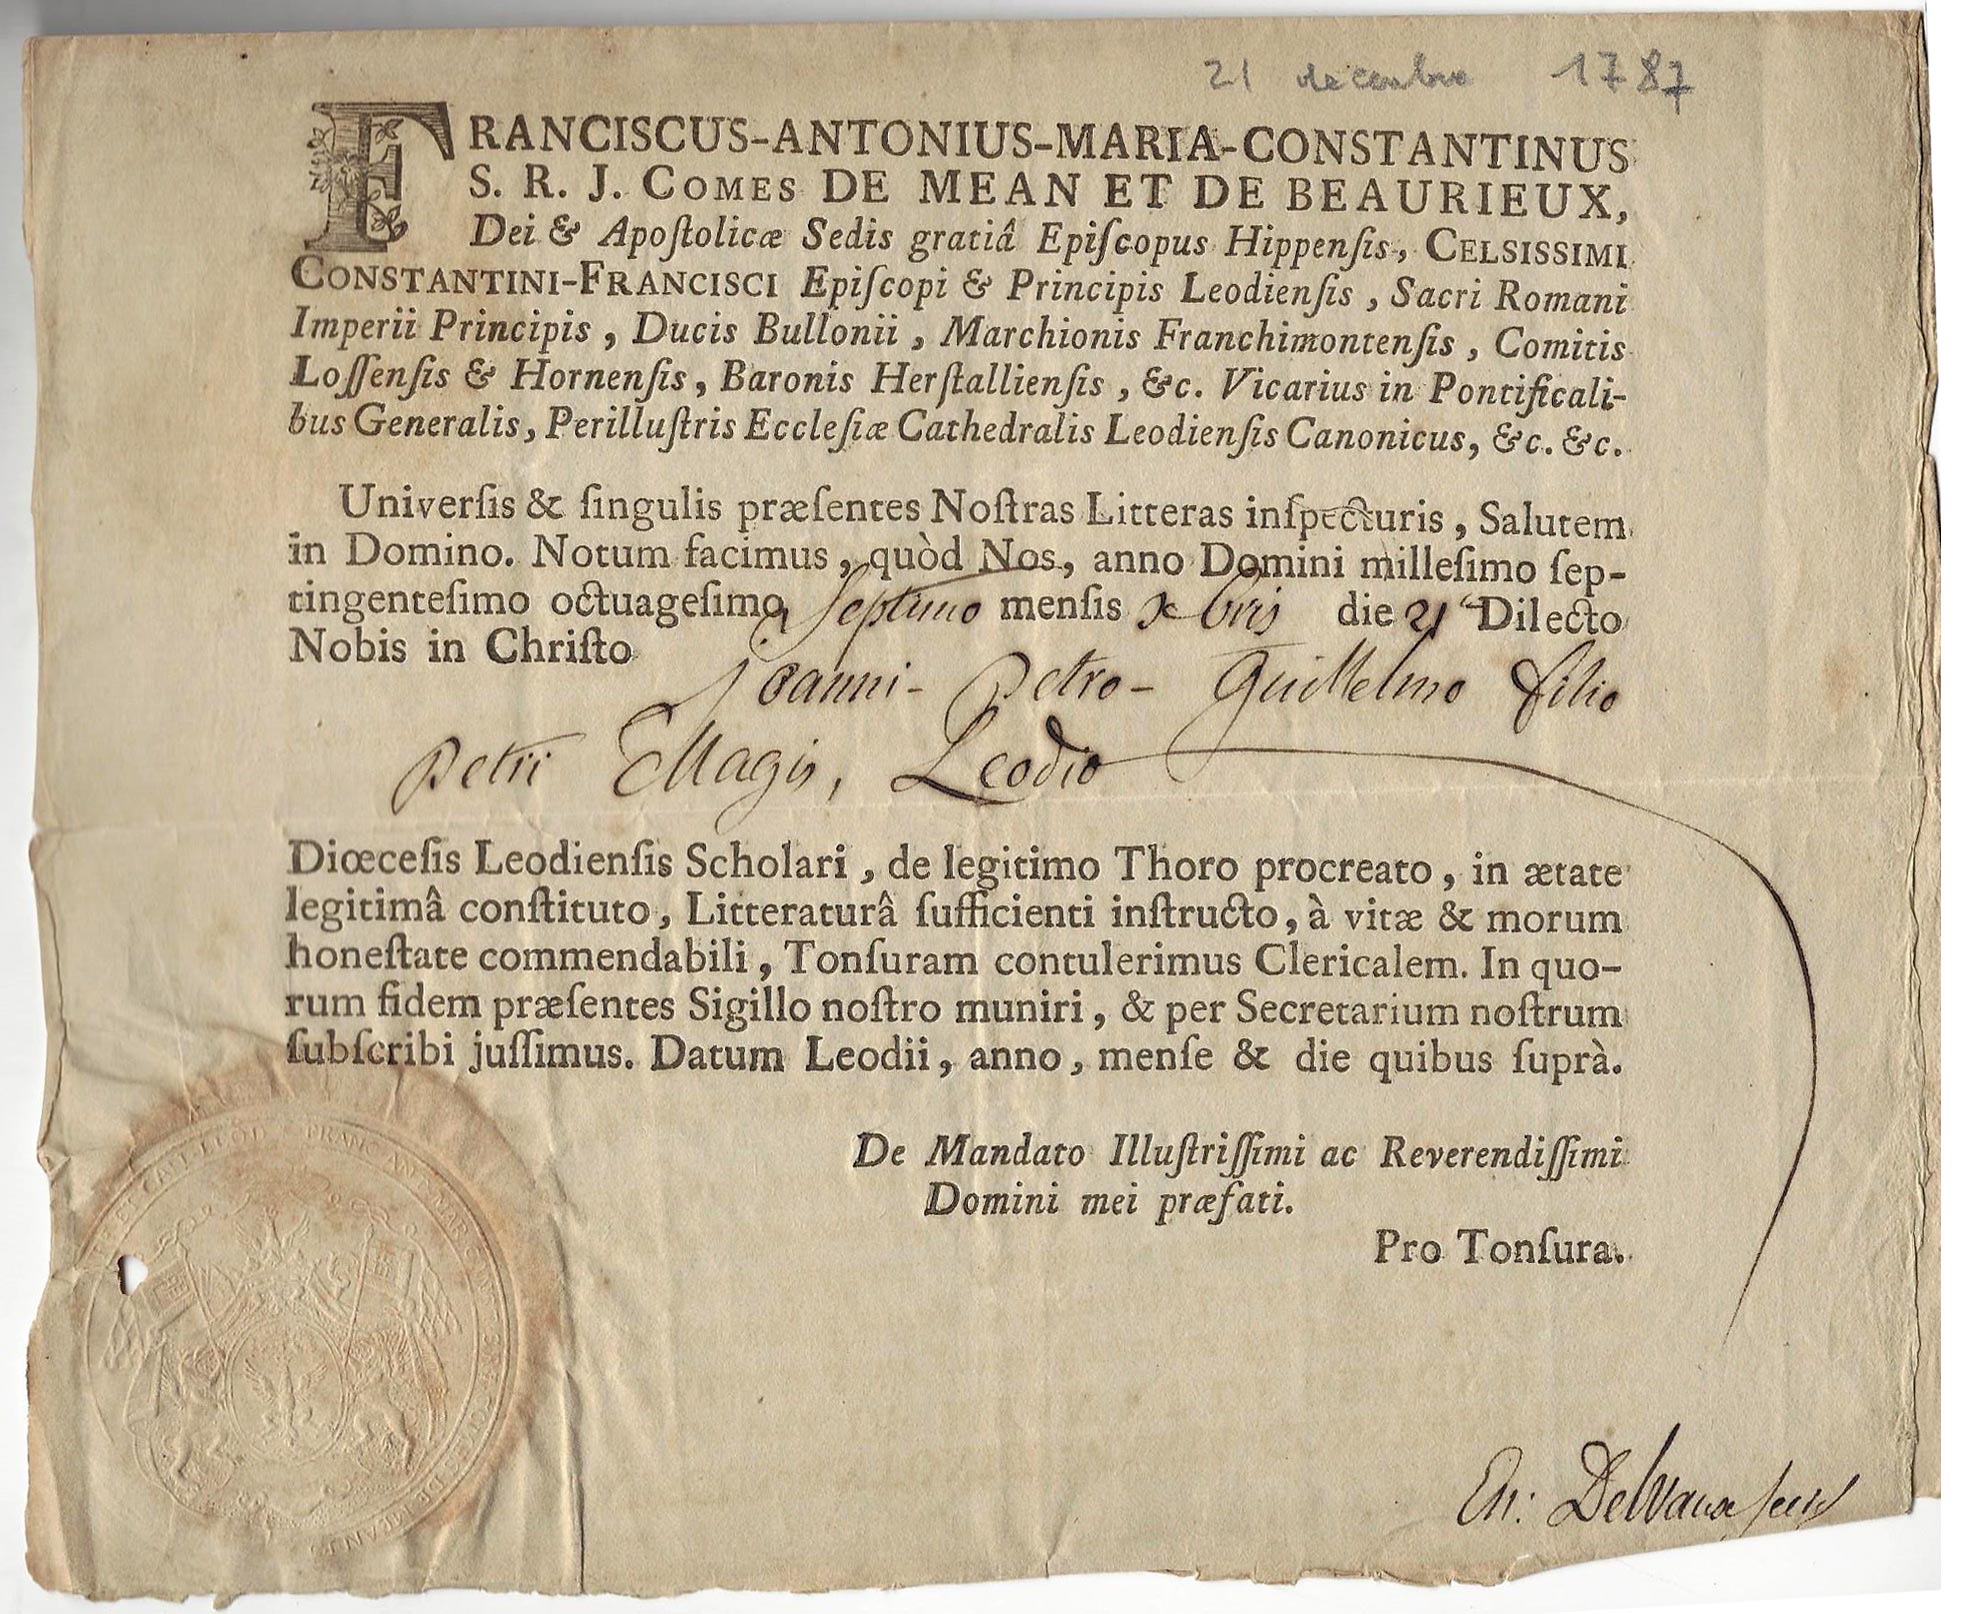 21 decembre 1787
FRANCISCUS-ANTONIUS-MARIA-CONSTANTINUS
S. R. J. COMES DE MEAN ET DE BEAURIEUX,
Dei & Apoſtolicæ Sedis gratiâ Epiſcopus Hippenſis, CELSISSIMI
CONSTANTINI-FRANCISCI Epiſcopi & Principis Leodienſis, Sacri Romani
Imperii Principis, Ducis Bullonii, Marchionis Franchimontenſis, Comitis
Loſſenſis & Hornenſis, Baronis Herſtallienſis, &c. Vicarius in Pontificali-
bus Generalis, Perilluſtris Eccleſiæ Cathedralis Leodienſis Canonicus, &c. &c.
Univerſis & ſingulis præſentes Noſtras Litteras inſpecturis, Salutem
in Domino. Notum facimus, quòd Nos, anno Domini milleſimo ſep-
tingenteſimo octuageſimo Septimo menſis xbris die 21 Dilecto
Nobis in Chriſto
Joanni-Petro-Guillelmo filio
Petri Magis, Leodio
Diœceſis Leodienſis Scholari, de legitimo Thoro procreato, in ætate
legitimâ conſtituto, Litteraturâ ſufficienti inſtructo, à vitæ & morum
honeſtate commendabili, Tonſuram contulerimus Clericalem. In quo-
rum fidem præſentes Sigillo noſtro muniri, & per Secretarium noſtrum
ſubſcribi juſſimus. Datum Leodii, anno, menſe & die quibus ſuprà.
De Mandato Illuſtriſſimi ac Reverendiſſimi
Domini mei præfati.
Pro Tonſura.
ET CATH LEOD FRANC ANT MAR DE MEAN
Delvaux